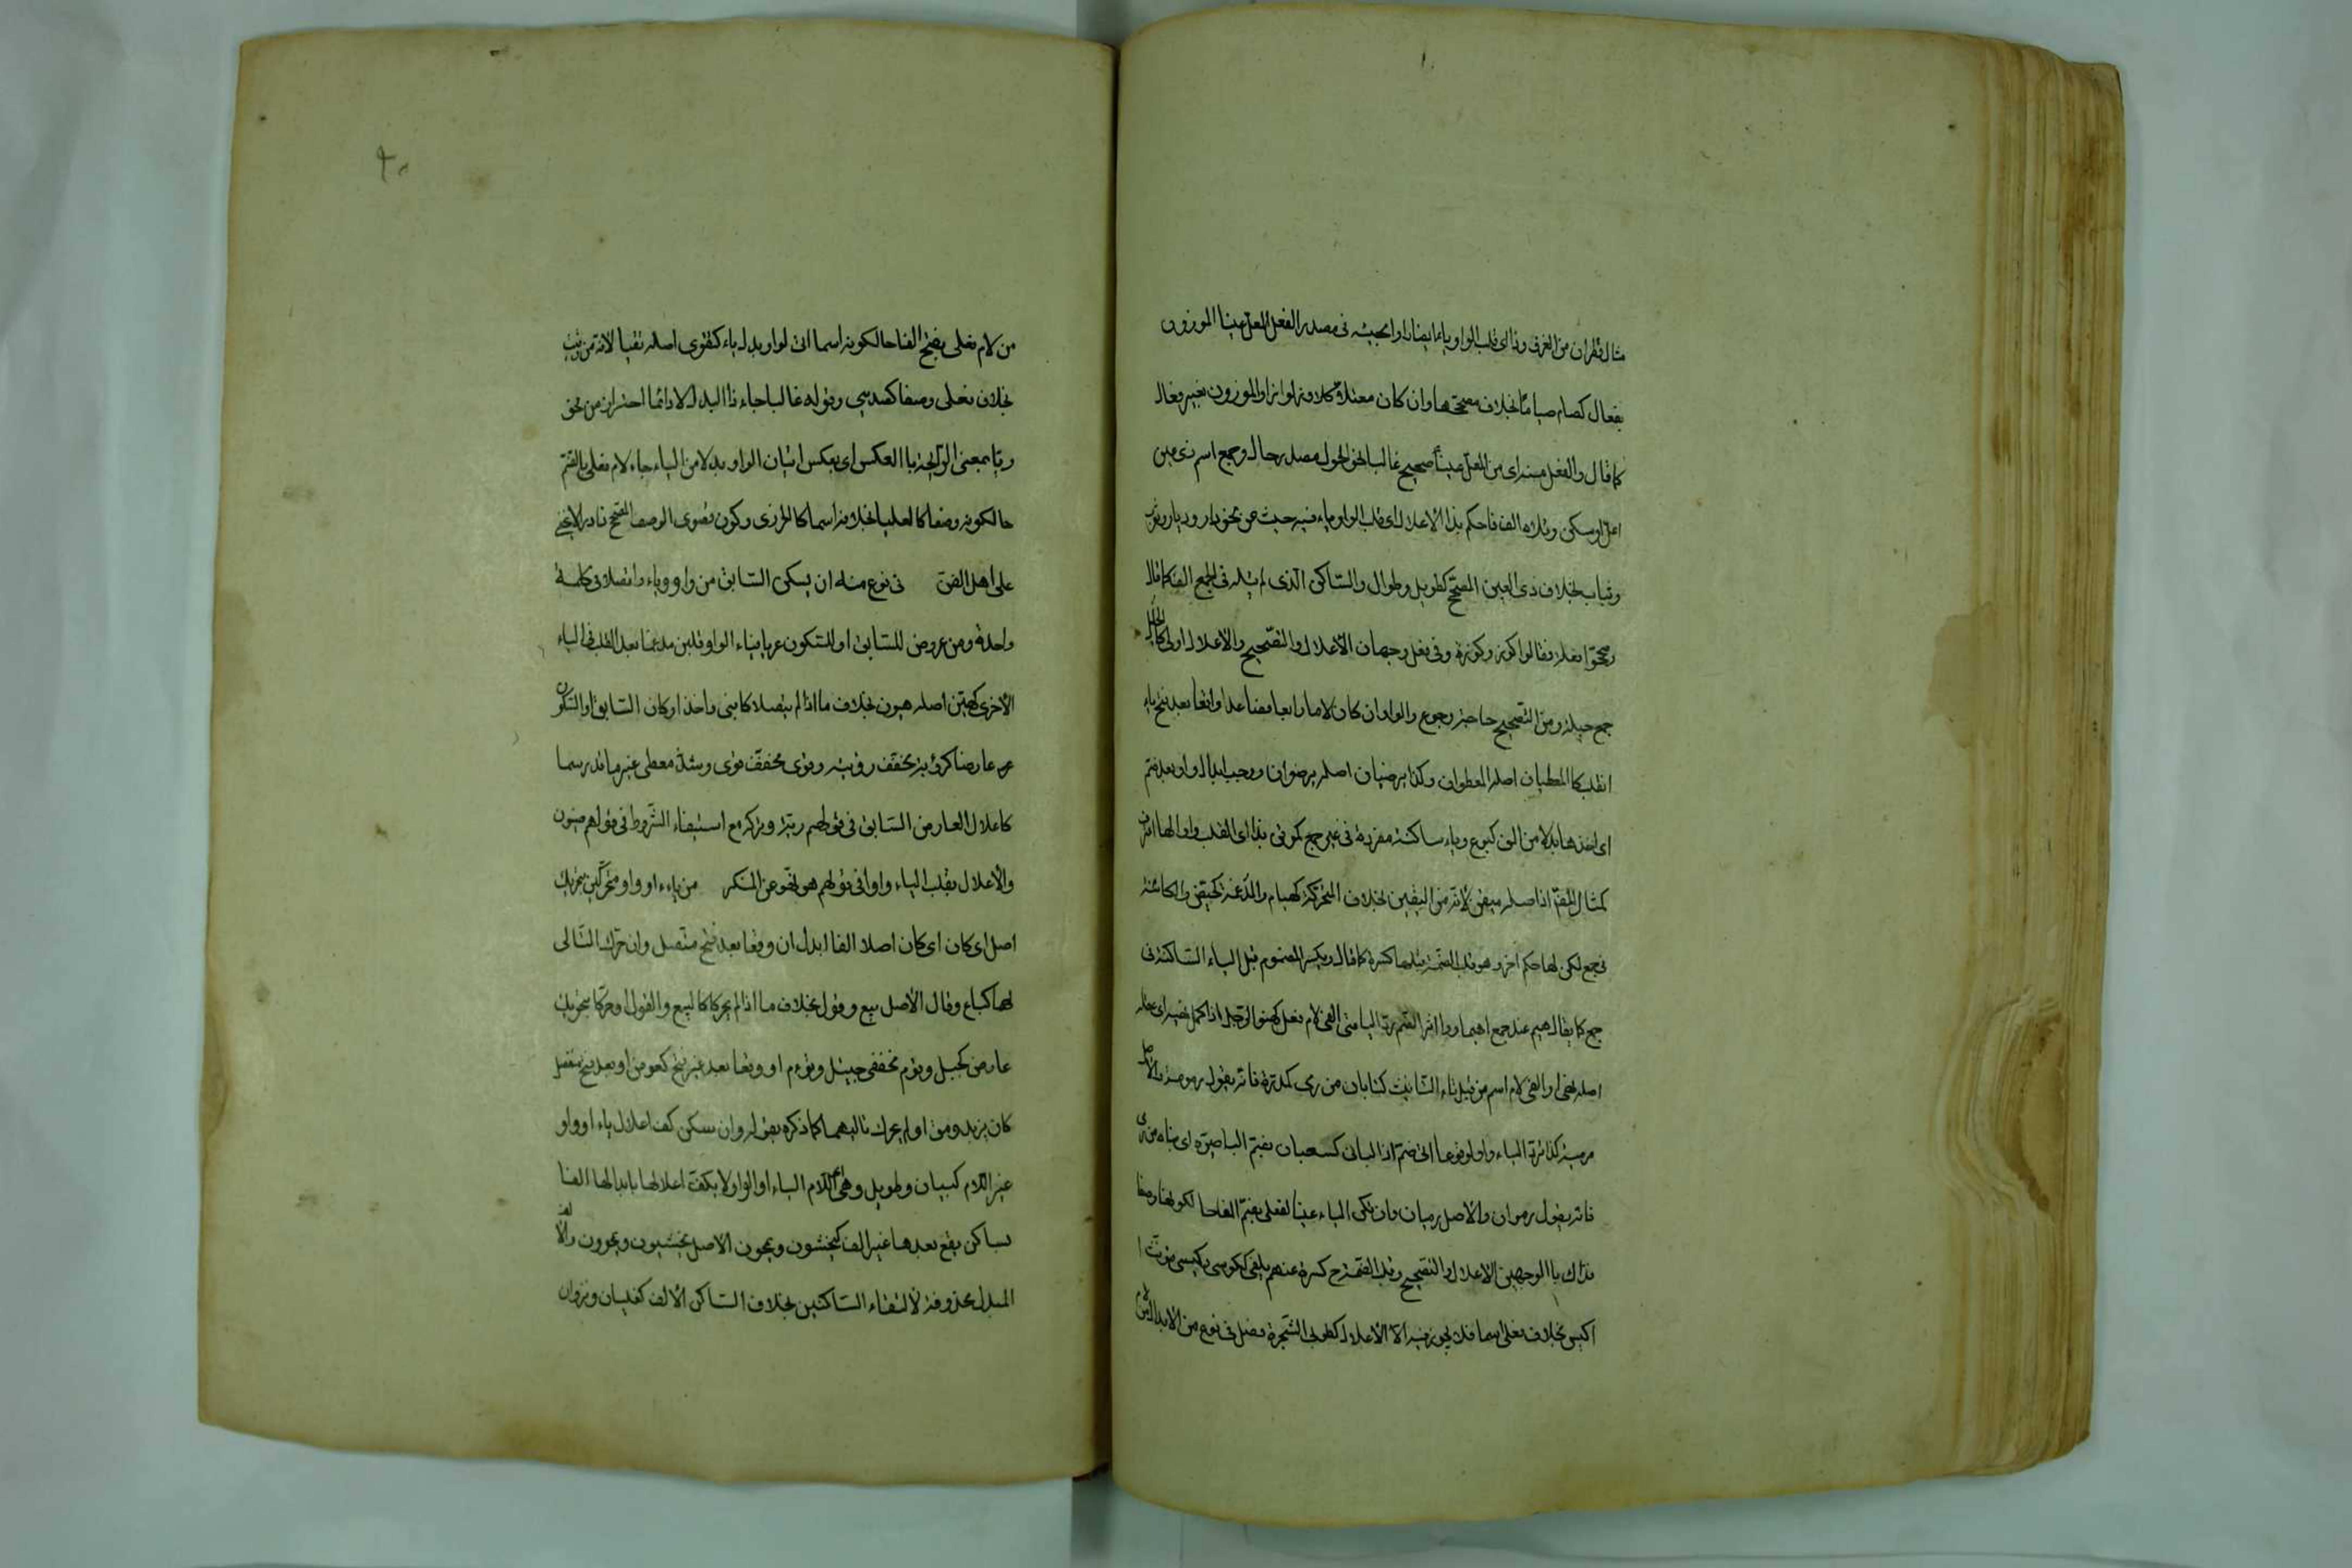 مثال قطران من الغزو وذا اى قلب الواو ياء ايضا راوا مجيئه فى مصدر الفعل المعل عينا الموزون
بفعال كصام صياما بخلاف مصححها وان كان معتلا كلاوذ لواذا والموزون بغير فعال
كما قال والفعل منه اى من المعل عينا صحيح غالبا نحو الحول مصدر حال وجمع اسم ذى عين
اعل او سكن وتلاه الف فاحكم بذا الاعلال اى قلب الواو ياء فيه حيث عن نحو دار وديار وثوب
وثياب بخلاف ذى العين المصحح كطويل وطوال والساكن الذى لم يله فى الجمع الف كما قال
وصححوا فعلة فقالوا كوز وكوزة وفى فعل وجهان الاعلال والتصحيح والاعلال اولى كالحيل
جمع حيلة ومن التصحيح حاجة وحوج والواو ان كان لاما رابعا فصاعدا واقعا بعد فتح ياء
انقلب كالمعطيان اصله المعطوان وكذا يرضيان اصله يرضوان ووجب ابدال واو بعد ضم
اى اخذها بدلا من الف كبويع وياء ساكنة مفردة فى غير جمع كموقن بذا اى القلب واوا لها اعترف
كمثال المقم اذ اصله ميقن لانه من اليقين بخلاف المتحركة كهيام والمدغمة كحيض والكائنة
فى جمع لكن لها حكم اخر وهو قلب الضمة قبلها كسرة كما قال ويكسر المضموم قبل الياء الساكنة فى
جمع كما يقال هيم عند جمع اهيما وواوا اثر الضم رد اليا متى الفى لام فعل كنهو الرجل اذا كمل نهيه اى عقله
اصله نهى او الفى لام اسم من قبل تاء التانيث كتا بان من رمى كمقدرة فانه يقول مرموة والاصل
مرمية كذا ترد الياء واوا لوقوعها اثر ضم اذا البانى كسبعان بضم الباء صيره اى بناه من رمى
فانه يقول رموان والاصل رميان وان تكن الياء عينا لفعلى بضم الفا حا لكونها وصفا
فذاك بالوجهين الاعلال والتصحيح وقلب الضمة ح كسرة عنهم يلفى ككوسى وكيسى مؤنث
اكيس بخلاف فعلى اسما فلا يجوز فيه الا الاعلال كطوبى الشجرة فصل فى نوع من الابدال
من لام فعلى بفتح الفا حا لكونه اسما اتى الواو بدل ياء كتقوى اصله تقيا لانه من وقيت
بخلاف فعلى وصفا كصدى وقوله غالبا جاء ذا البدل لا دائما احتراز من نحو
ريا بمعنى الرائحة با العكس اى بعكس اتيان الواو بدلا من الياء جاء لام فعلى بالضم
حا لكونه وصفا كالعليا بخلافه اسما كالحزوى وكون قصوى الوصف المصحح نادر لا يخفى
على اهل الفن فى نوع منه ان يسكن السابق من واو وياء واتصلا فى كلمة
واحدة ومن عروض للسابق او للسكون عريا فياء الواو اقلبن مدغما بعد القلب فى الياء
الاخرى كهين اصله هيون بخلاف ما اذا لم يتصلا كابنى واخذ او كان السابق او السكون
عارضا كروية مخفف رؤية وقوى مخفف قوى وشذ معطى غير ما قد رسما
كاعلال العارض السابق فى قولهم رية وتركه مع استيفاء الشروط فى قولهم ضيون
والاعلال بقلب الياء واوا فى قولهم هو نهو عن المنكر من ياء او واو متحركين بتحريك
اصل اى كان اى كان اصلا الفا ابدل ان وقعا بعد فتح متصل وان حرك التالى
لهما كباع وقال الاصل بيع وقول بخلاف ما اذا لم يحركا كالبيع والقول او حركا بتحريك
عارض كجيل وتوم مخففى جيئل وتوءم او وقعا بعد غير فتح كعوض او بعد فتح منفصل
كان يزيد ومق او لم يحرك تاليهما كما ذكره بقوله وان سكن كف اعلال ياء او واو
غير اللام كبيان وطويل وهى اى اللام الياء او الواو لا يكف اعلالها بابدالها الفا
بساكن يقع بعدها غير الف كيخشون ويمحون الاصل يخشيون ويمحوون والالف
المبدل محذوفة لالتقاء الساكنين بخلاف الساكن الالف كغليان ونزوان